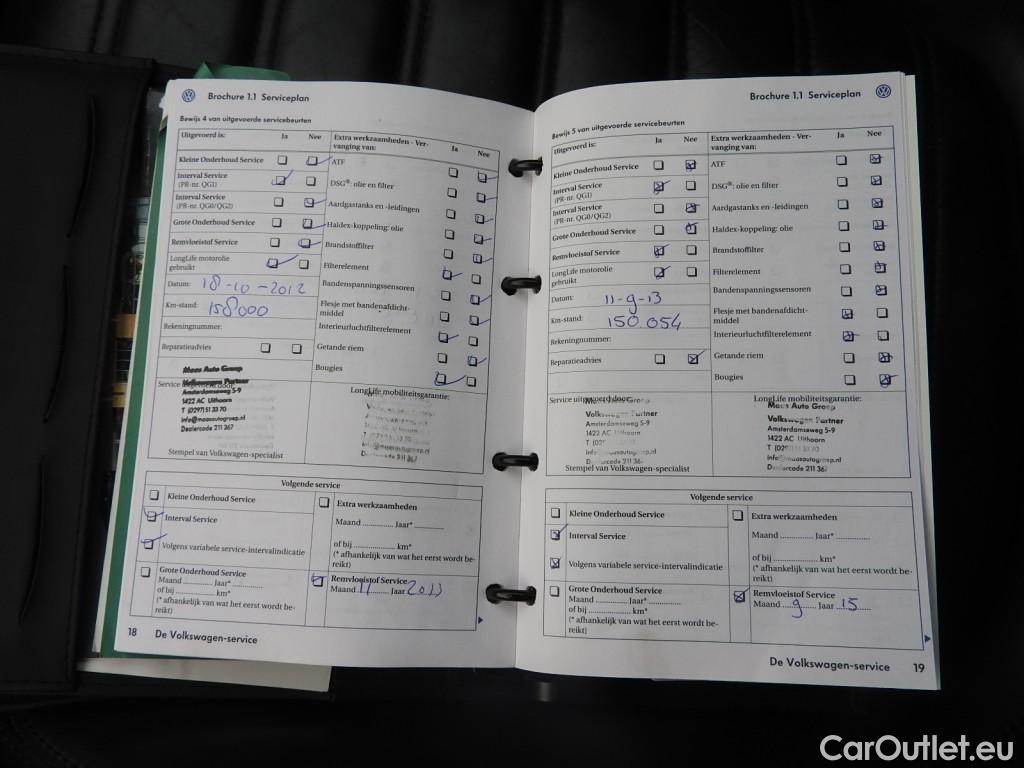 Brochure 1.1 Serviceplan
Bewijs 4 van uitgevoerde servicebeurten
Uitgevoerd is: Ja Nee
Extra werkzaamheden - Ver-
vanging van: Ja Nee
Kleine Onderhoud Service
Interval Service
(PR-nr. QG1)
Interval Service
(PR-nr. QG0/QG2)
Grote Onderhoud Service
Remvloeistof Service
LongLife motorolie
gebruikt
Datum: 18-10-2012
Km-stand: 158000
Rekeningnummer:
Reparatieadvies
ATF
DSG®: olie en filter
Aardgastanks en -leidingen
Haldex-koppeling: olie
Brandstoffilter
Filterelement
Bandenspanningssensoren
Flesje met bandenafdicht-
middel
Interieurluchtfilterelement
Getande riem
Bougies
Maas Auto Groep
Volkswagen Partner
Amsterdamseweg 5-9
1422 AC Uithoorn
T (0297) 51 33 70
info@maasautogroep.nl
Dealercode 211 367
Stempel van Volkswagen-specialist
LongLife mobiliteitsgarantie:
Volgende service
Kleine Onderhoud Service
Interval Service
Volgens variabele service-intervalindicatie
Grote Onderhoud Service
Maand ............. Jaar* .............
of bij .................... km*
(* afhankelijk van wat het eerst wordt be-
reikt)
Extra werkzaamheden
Maand ............. Jaar* .............
of bij .................... km*
(* afhankelijk van wat het eerst wordt be-
reikt)
Remvloeistof Service
Maand 11 Jaar 2013
18 De Volkswagen-service
Brochure 1.1 Serviceplan
Bewijs 5 van uitgevoerde servicebeurten
Uitgevoerd is: Ja Nee
Extra werkzaamheden - Ver-
vanging van: Ja Nee
Kleine Onderhoud Service
Interval Service
(PR-nr. QG1)
Interval Service
(PR-nr. QG0/QG2)
Grote Onderhoud Service
Remvloeistof Service
LongLife motorolie
gebruikt
Datum: 11-9-13
Km-stand: 150.054
Rekeningnummer:
Reparatieadvies
ATF
DSG®: olie en filter
Aardgastanks en -leidingen
Haldex-koppeling: olie
Brandstoffilter
Filterelement
Bandenspanningssensoren
Flesje met bandenafdicht-
middel
Interieurluchtfilterelement
Getande riem
Bougies
Service uitgevoerd door:
Volkswagen Partner
Amsterdamseweg 5-9
1422 AC Uithoorn
Dealercode 211 367
Stempel van Volkswagen-specialist
LongLife mobiliteitsgarantie:
Maas Auto Groep
Volkswagen Partner
Amsterdamseweg 5-9
1422 AC Uithoorn
info@maasautogroep.nl
Dealercode 211 367
Volgende service
Kleine Onderhoud Service
Interval Service
Volgens variabele service-intervalindicatie
Grote Onderhoud Service
Maand ............. Jaar* .............
of bij .................... km*
(* afhankelijk van wat het eerst wordt be-
reikt)
Extra werkzaamheden
Maand ............. Jaar* .............
of bij .................... km*
(* afhankelijk van wat het eerst wordt be-
reikt)
Remvloeistof Service
Maand 9 Jaar 15
De Volkswagen-service 19
CarOutlet.eu